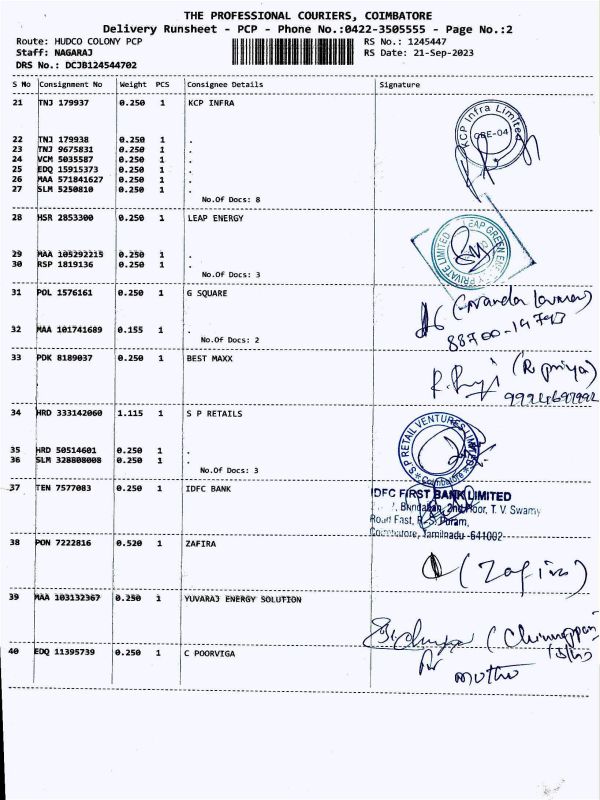 THE PROFESSIONAL COURIERS, COIMBATORE
Delivery Runsheet - PCP - Phone No.:0422-3505555 - Page No.:2
Route: HUDCO COLONY PCP RS No.: 1245447
Staff: NAGARAJ RS Date: 21-Sep-2023
DRS No.: DCJB124544702
S No Consignment No Weight PCS Consignee Details Signature
21 TNJ 179937 0.250 1 KCP INFRA
KCP Infra Limited
CBE-04
22 TNJ 179938 0.250 1 .
23 TNJ 9675831 0.250 1 .
24 VCM 5035587 0.250 1 .
25 EDQ 15915373 0.250 1 .
26 MAA 571841627 0.250 1 .
27 SLM 5250810 0.250 1 .
No.Of Docs: 8
28 HSR 2853300 0.250 1 LEAP ENERGY
LEAP GREEN ENERGY PRIVATE LIMITED
29 MAA 105292215 0.250 1 .
30 RSP 1819136 0.250 1 .
No.Of Docs: 3
31 POL 1576161 0.250 1 G SQUARE
32 MAA 101741689 0.155 1 .
88700-14793
No.Of Docs: 2
33 PDK 8189037 0.250 1 BEST MAXX
(R priya)
34 HRD 333142060 1.115 1 S P RETAILS
S P RETAIL VENTURES LIMITED
Coimbatore
35 HRD 50514601 0.250 1 .
36 SLM 328808008 0.250 1 .
No.Of Docs: 3
37 TEN 7577083 0.250 1 IDFC BANK
IDFC FIRST BANK LIMITED
Bhndaban, 2nd Floor, T. V. Swamy
Road East, R. S. Puram,
Coimbatore, Tamilnadu -641002
38 PON 7222816 0.520 1 ZAFIRA
(Zafira)
39 MAA 103132367 0.250 1 YUVARAJ ENERGY SOLUTION
40 EDQ 11395739 0.250 1 C POORVIGA